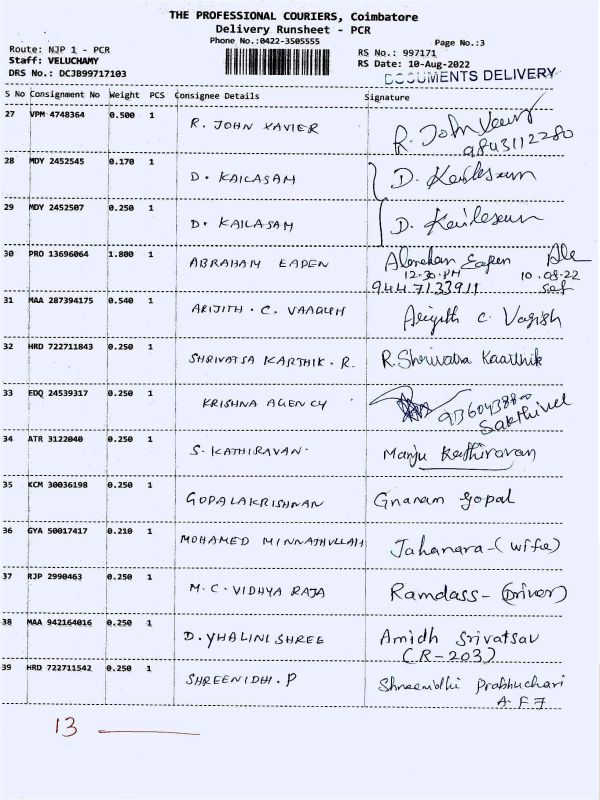 THE PROFESSIONAL COURIERS, Coimbatore
Delivery Runsheet - PCR
Phone No.:0422-3505555
Page No.:3
Route: NJP 1 - PCR
RS No.: 997171
Staff: VELUCHAMY
RS Date: 10-Aug-2022
DRS No.: DCJB99717103
DOCUMENTS DELIVERY
S No Consignment No Weight PCS Consignee Details Signature
27 VPM 4748364 0.500 1 R. JOHN XAVIER R. John
9843112280
28 MDY 2452545 0.170 1 D. KAILASAM D. Kailesam
29 MDY 2452507 0.250 1 D. KAILASAM D. Kailesam
30 PRO 13696064 1.800 1 ABRAHAM EAPEN Abraham Eapen
12.30.PM 10.08.22
9447133911
31 MAA 287394175 0.540 1 ARIJITH. C. VAAGISH Arijith C. Vagish
32 HRD 722711843 0.250 1 SHRIVATSA KARTHIK. R. R. Shrivatsa Kaarthik
33 EDQ 24539317 0.250 1 KRISHNA AGENCY 9360438800
Sakthivel
34 ATR 3122040 0.250 1 S. KATHIRAVAN. Manju Kathiravan
35 KCM 30036198 0.250 1 GOPALAKRISHNAN Gnanam Gopal
36 GYA 50017417 0.210 1 MOHAMED MINNATHULLAH Jahanara - (wife)
37 RJP 2990463 0.250 1 M. C. VIDHYA RAJA Ramdass - (Driver)
38 MAA 942164016 0.250 1 D. YHALINI SHREE Amidh Srivatsav
(R-203)
39 HRD 722711542 0.250 1 SHREENIDHI. P Shreenidhi Prabhuchari
A F7
13